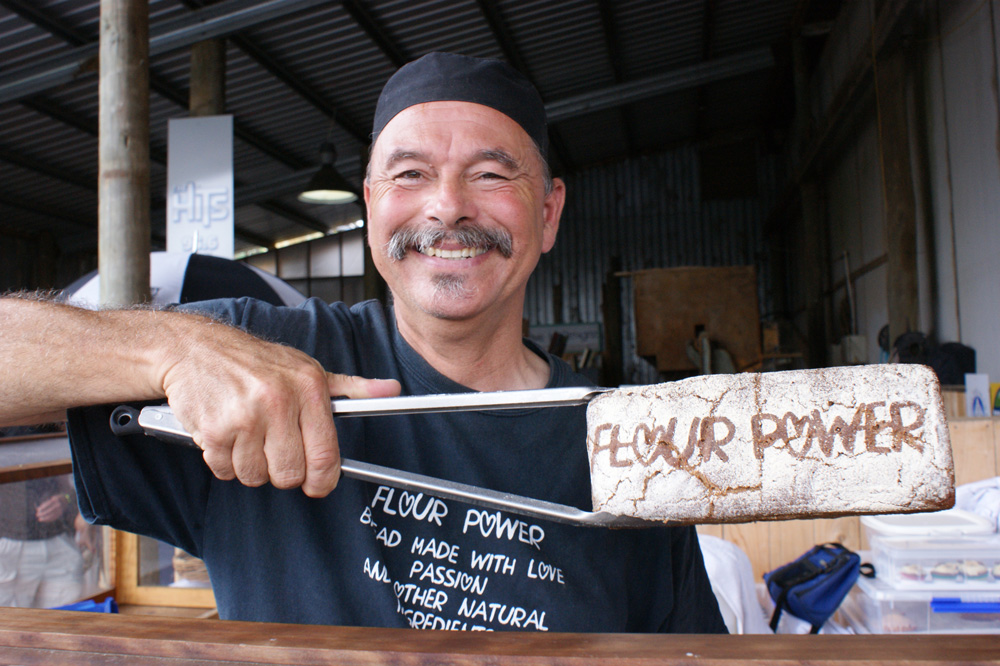 HiTS
FLOUR POWER
FLOUR POWER
BREAD MADE WITH LOVE
PASSION
AND OTHER NATURAL
INGREDIENTS